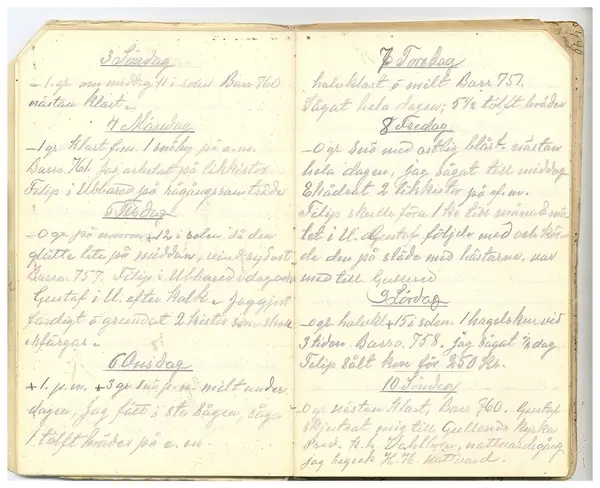 3 Söndag
- 1 gr. om middag 11 i solen. Barr 760
nästan klart.
4 Måndag
- 1 gr. Klart f.m. 1 snöby på e.m.
Barr. 761. Jag arbetat på likkistor
Filip i Ubbared på
5 Tisdag
- 0 gr. på morron +12 i solen då den
glutte lite på middan, vind sydost
Barro 757. Filip i Ubbared idag och
Gustaf i U. efter kalk. Jag gjort
färdigt å grundat 2 kistor som skall
färgas.
6 Onsdag
+ 1. p.m. + 3 gr. snö p.m. milt under
dagen, Jag fått i sta sågen, sågat
1 tölft bräder på e.m.
7 Torsdag
halvklart å milt Barr 751.
Sågat hela dagen; 5 1/2 tölft bräder
8 Fredag
- 0 gr Snö med ostlig blåst. nästan
hela dagen, jag sågat till middag
Ekådrat 2 likkistor på e.m.
Filip skulle föra 1 ko till månadsmö-
tet i U. Gustaf följde med och kör-
de den på släde med hästarne, var
med till Gullered
9 Lördag
- 0 gr. halvkl +15 i solen. 1 hagelskur vid
3 tiden. Barro. 758. jag sågat 1/2 dag
Filip sålt kon för 250 Kr.
10 Söndag
0 gr nästan Klart, Barr 760. Gustaf
skjutsat mig till Gullereds kyrka
Pred. K.h. Vahllöin, nattvardsgång
jag begick H. H. Nattvard.